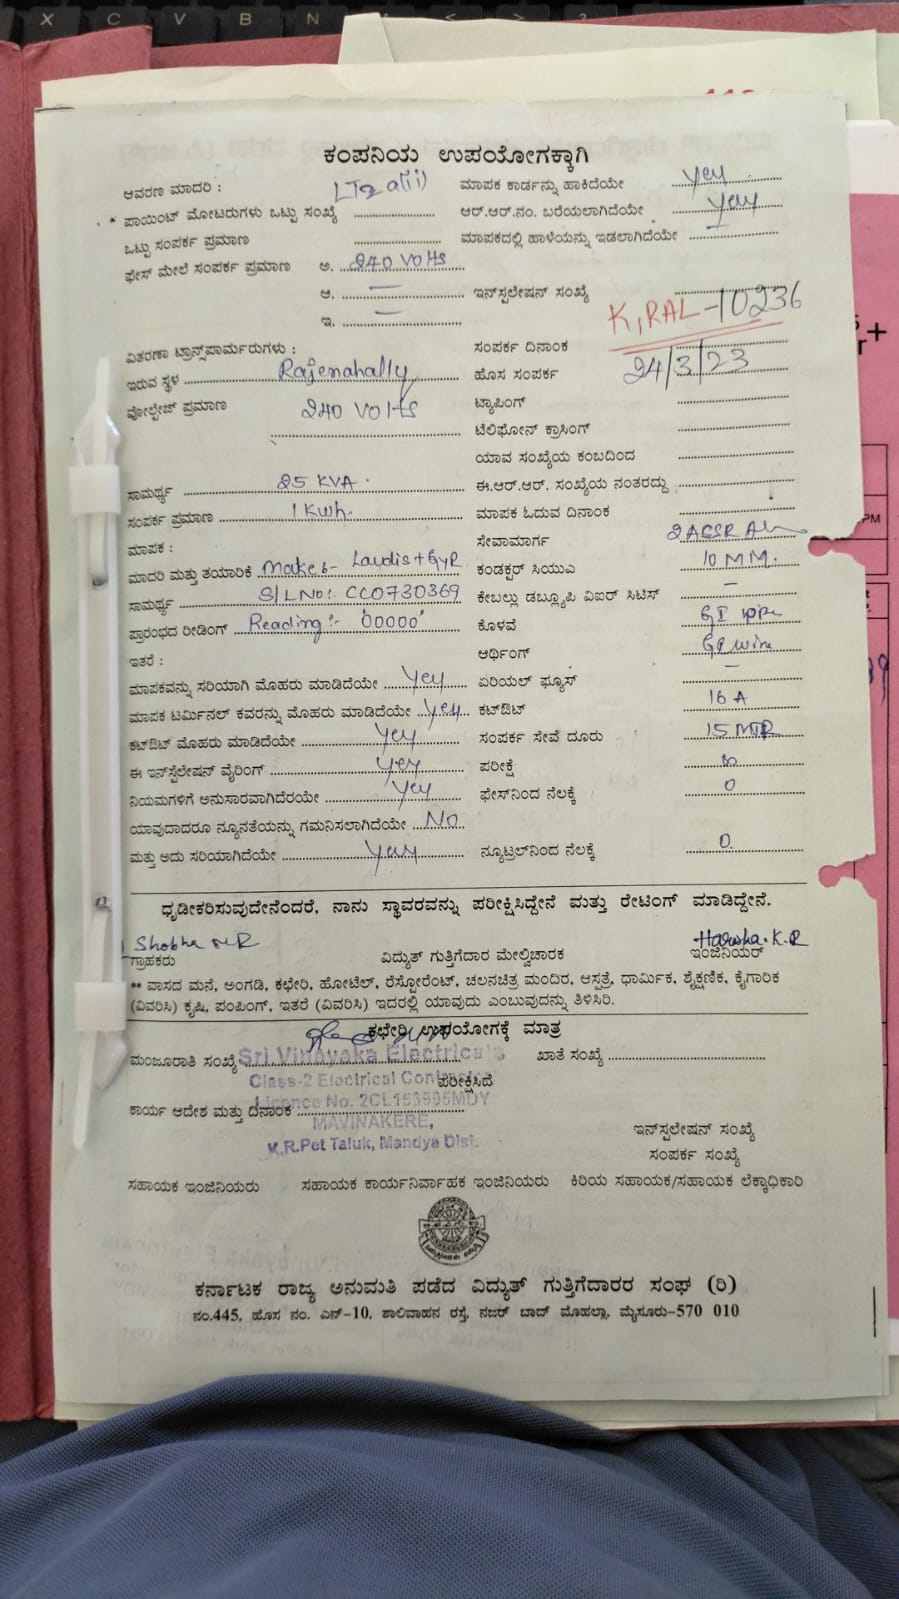 X C V B N
ಕಂಪನಿಯ ಉಪಯೋಗಕ್ಕಾಗಿ
ಆವರಣ ಮಾದರಿ : LT2 a(ii) ಮಾಪಕ ಕಾರ್ಡನ್ನು ಹಾಕಿದೆಯೇ yey
* ಪಾಯಿಂಟ್ ಮೋಟರುಗಳು ಒಟ್ಟು ಸಂಖ್ಯೆ ಆರ್.ಆರ್.ನಂ. ಬರೆಯಲಾಗಿದೆಯೇ yey
ಒಟ್ಟು ಸಂಪರ್ಕ ಪ್ರಮಾಣ ಮಾಪಕದಲ್ಲಿ ಹಾಳೆಯನ್ನು ಇಡಲಾಗಿದೆಯೇ –
ಫೇಸ್ ಮೇಲೆ ಸಂಪರ್ಕ ಪ್ರಮಾಣ ಅ. 240 VOlts
ಆ. – ಇನ್‌ಸ್ಪಲೇಷನ್ ಸಂಖ್ಯೆ K,RAL-10236
ಇ. –
ವಿತರಣಾ ಟ್ರಾನ್ಸ್‌ಪಾರ್ಮರುಗಳು : ಸಂಪರ್ಕ ದಿನಾಂಕ 24/3/23
ಇರುವ ಸ್ಥಳ Rajenahally ಹೊಸ ಸಂಪರ್ಕ
ವೋಲ್ಟೇಜ್ ಪ್ರಮಾಣ 240 VOlts ಟ್ಯಾಪಿಂಗ್
ಟೆಲಿಫೋನ್ ಕ್ರಾಸಿಂಗ್
ಯಾವ ಸಂಖ್ಯೆಯ ಕಂಬದಿಂದ
ಸಾಮರ್ಥ್ಯ 25 KVA. ಈ.ಆರ್.ಆರ್. ಸಂಖ್ಯೆಯ ನಂತರದ್ದು
ಸಂಪರ್ಕ ಪ್ರಮಾಣ 1 Kwh. ಮಾಪಕ ಓದುವ ದಿನಾಂಕ
ಮಾಪಕ : ಸೇವಾಮಾರ್ಗ 2 ACSR
ಮಾದರಿ ಮತ್ತು ತಯಾರಿಕೆ Make:- Landis+GyR ಕಂಡಕ್ಟರ್ ಸಿಯುಎ 10 MM.
ಸಾಮರ್ಥ್ಯ S/LNO:- CC0730369 ಕೇಬಲ್ಲು ಡಬ್ಲ್ಯೂಪಿ ವಿಐರ್ ಸಿಟಿಸ್ –
ಪ್ರಾರಂಭದ ರೀಡಿಂಗ್ Reading:- '00000' ಕೊಳವೆ GI pipe
ಇತರೆ : ಆರ್ಥಿಂಗ್ GI wire
ಮಾಪಕವನ್ನು ಸರಿಯಾಗಿ ಮೊಹರು ಮಾಡಿದೆಯೇ yey ಏರಿಯಲ್ ಫ್ಯೂಸ್ –
ಮಾಪಕ ಟರ್ಮಿನಲ್ ಕವರನ್ನು ಮೊಹರು ಮಾಡಿದೆಯೇ yey ಕಟ್‌ಔಟ್ 16 A
ಕಟ್‌ಔಟ್ ಮೊಹರು ಮಾಡಿದೆಯೇ yey ಸಂಪರ್ಕ ಸೇವೆ ದೂರು 15 MTR
ಈ ಇನ್‌ಸ್ಪೆಲೇಷನ್ ವೈರಿಂಗ್ yey ಪರೀಕ್ಷೆ
ನಿಯಮಗಳಿಗೆ ಅನುಸಾರವಾಗಿದೆರಯೇ yey ಫೇಸ್‌ನಿಂದ ನೆಲಕ್ಕೆ 0
ಯಾವುದಾದರೂ ನ್ಯೂನತೆಯನ್ನು ಗಮನಿಸಲಾಗಿದೆಯೇ No
ಮತ್ತು ಅದು ಸರಿಯಾಗಿದೆಯೇ yey ನ್ಯೂಟ್ರಲ್‌ನಿಂದ ನೆಲಕ್ಕೆ 0.
ಧೃಡೀಕರಿಸುವುದೇನೆಂದರೆ, ನಾನು ಸ್ಥಾವರವನ್ನು ಪರೀಕ್ಷಿಸಿದ್ದೇನೆ ಮತ್ತು ರೇಟಿಂಗ್ ಮಾಡಿದ್ದೇನೆ.
Shobha M R Harsha.K.R
ಗ್ರಾಹಕರು ವಿದ್ಯುತ್ ಗುತ್ತಿಗೆದಾರ ಮೇಲ್ವಿಚಾರಕ ಇಂಜಿನಿಯರ್
** ವಾಸದ ಮನೆ, ಅಂಗಡಿ, ಕಛೇರಿ, ಹೋಟೆಲ್, ರೆಸ್ಟೋರೆಂಟ್, ಚಲನಚಿತ್ರ ಮಂದಿರ, ಆಸ್ಪತ್ರೆ, ಧಾರ್ಮಿಕ, ಶೈಕ್ಷಣಿಕ, ಕೈಗಾರಿಕ
(ವಿವರಿಸಿ) ಕೃಷಿ, ಪಂಪಿಂಗ್, ಇತರೆ (ವಿವರಿಸಿ) ಇದರಲ್ಲಿ ಯಾವುದು ಎಂಬುವುದನ್ನು ತಿಳಿಸಿರಿ.
ಕಛೇರಿ ಉಪಯೋಗಕ್ಕೆ ಮಾತ್ರ
ಮಂಜೂರಾತಿ ಸಂಖ್ಯೆ ಖಾತೆ ಸಂಖ್ಯೆ
Sri Vinayaka Electricals
Class-2 Electrical Contractor
ಪರೀಕ್ಷಿಸಿದೆ
Licence No. 2CL153995MDY
ಕಾರ್ಯ ಆದೇಶ ಮತ್ತು ದಿನಾಂಕ
MAVINAKERE,
K.R.Pet Taluk, Mandya Dist.
ಇನ್‌ಸ್ಪಲೇಷನ್ ಸಂಖ್ಯೆ
ಸಂಪರ್ಕ ಸಂಖ್ಯೆ
ಸಹಾಯಕ ಇಂಜಿನಿಯರು ಸಹಾಯಕ ಕಾರ್ಯನಿರ್ವಾಹಕ ಇಂಜಿನಿಯರು ಕಿರಿಯ ಸಹಾಯಕ/ಸಹಾಯಕ ಲೆಕ್ಕಾಧಿಕಾರಿ
ಕರ್ನಾಟಕ ರಾಜ್ಯ ಅನುಮತಿ ಪಡೆದ ವಿದ್ಯುತ್ ಗುತ್ತಿಗೆದಾರರ ಸಂಘ (ರಿ)
ನಂ.445, ಹೊಸ ನಂ. ಎನ್-10, ಶಾಲಿವಾಹನ ರಸ್ತೆ, ನಜರ್ ಬಾದ್ ಮೊಹಲ್ಲಾ, ಮೈಸೂರು-570 010